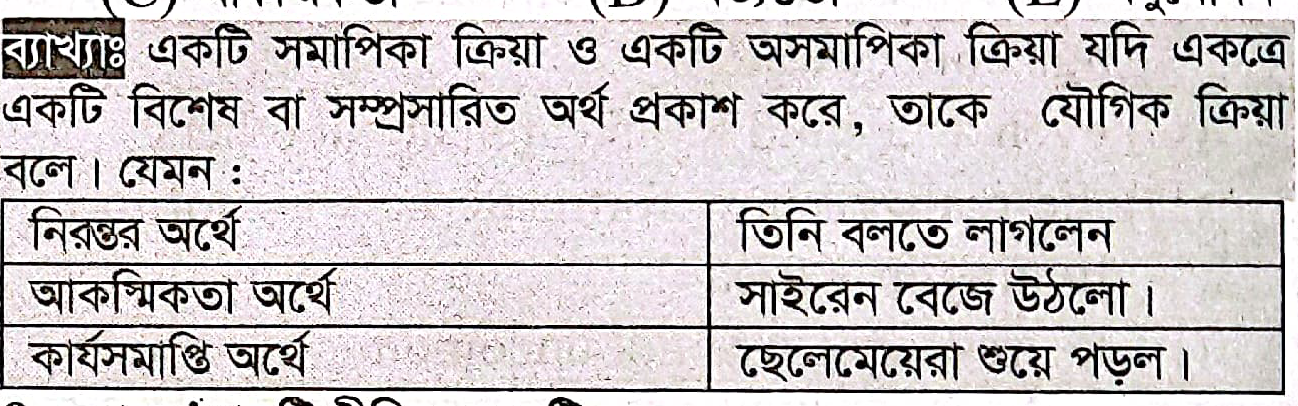 ব্যাখ্যাঃ একটি সমাপিকা ক্রিয়া ও একটি অসমাপিকা ক্রিয়া যদি একত্রে
একটি বিশেষ বা সম্প্রসারিত অর্থ প্রকাশ করে, তাকে যৌগিক ক্রিয়া
বলে। যেমন :
নিরন্তর অর্থে তিনি বলতে লাগলেন
আকস্মিকতা অর্থে সাইরেন বেজে উঠলো।
কার্যসমাপ্তি অর্থে ছেলেমেয়েরা শুয়ে পড়ল।